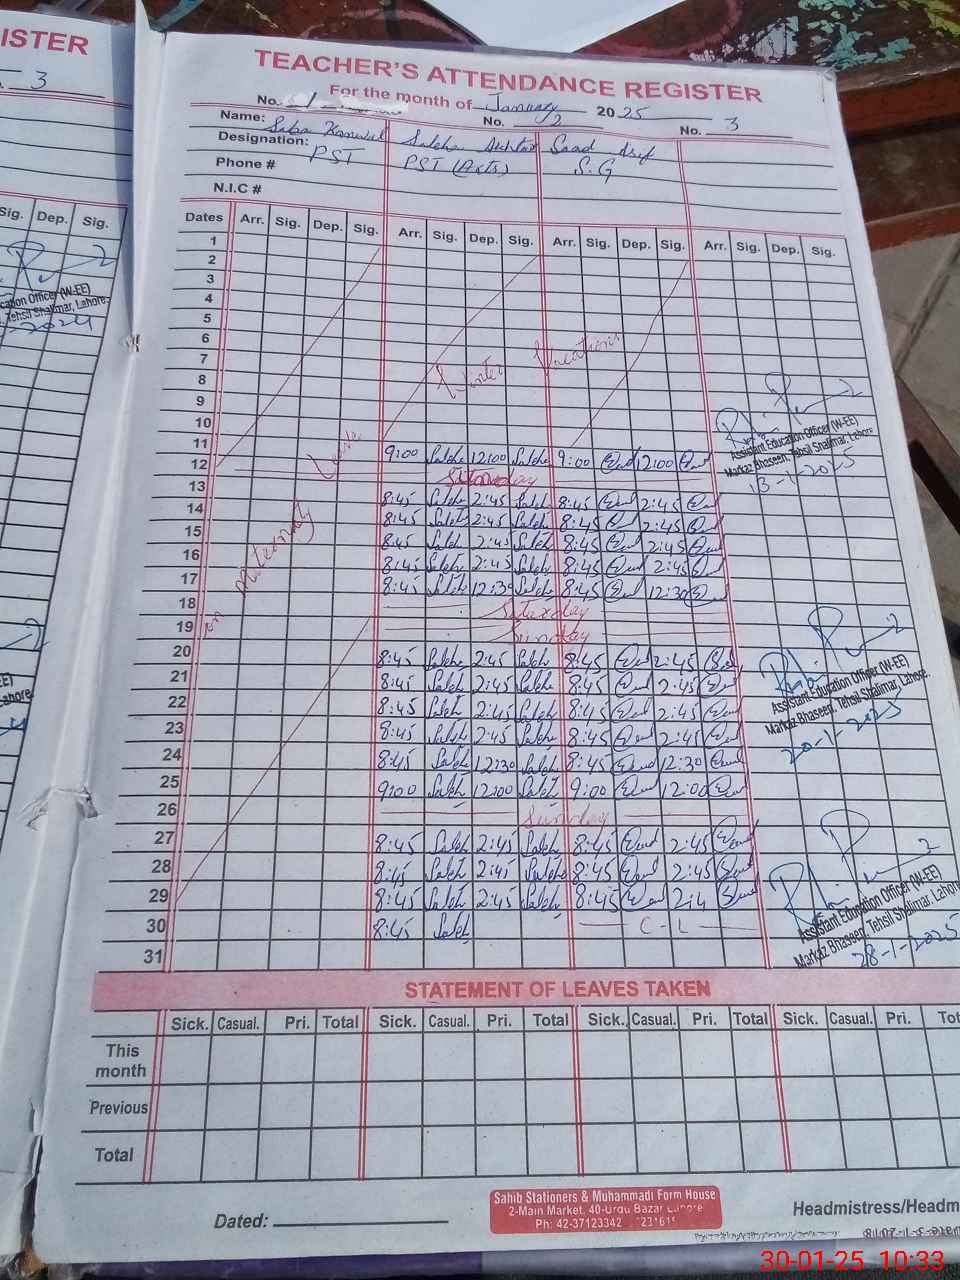 ISTER
3
Sig. Dep. Sig.
cation Officer (W-EE)
Tehsil Shalimar, Lahore.
2024
TEACHER'S ATTENDANCE REGISTER
For the month of January 2025
No. 1 No. 2 No. 3
Name: Saba Kanwal Saleha Akhtar Saad Asif
Designation: PST PST (Arts) S.G
Phone #
N.I.C #
Dates Arr. Sig. Dep. Sig. Arr. Sig. Dep. Sig. Arr. Sig. Dep. Sig. Arr. Sig. Dep. Sig.
1
2
3
4
5
6
7
Winter Vacations
8
9
10
11 9:00 Saleha 12:00 Saleha 9:00 12:00
12
on Maternity Leave
13 8:45 Saleha 2:45 Saleha 8:45 2:45
14 8:45 Saleha 2:45 Saleha 8:45 2:45
15 8:45 Saleha 2:45 Saleha 8:45 2:45
16 8:45 Saleha 2:45 Saleha 8:45 2:45
17 8:45 Saleha 12:30 Saleha 8:45 12:30
18 Saturday
19 Sunday
20 8:45 Saleha 2:45 Saleha 8:45 2:45
21 8:45 Saleha 2:45 Saleha 8:45 2:45
22 8:45 Saleha 2:45 Saleha 8:45 2:45
23 8:45 Saleha 2:45 Saleha 8:45 2:45
24 8:45 Saleha 12:30 Saleha 8:45 12:30
25 9:00 Saleha 12:00 Saleha 9:00 12:00
26 Sunday
27 8:45 Saleha 2:45 Saleha 8:45 2:45
28 8:45 Saleha 2:45 Saleha 8:45 2:45
29 8:45 Saleha 2:45 Saleha 8:45 2:4
30 8:45 Saleha C-L
31
Assistant Education Officer (W-EE)
Markaz Bhaseen, Tehsil Shalimar, Lahore
13-1-2025
Assistant Education Officer (W-EE)
Markaz Bhaseen, Tehsil Shalimar, Lahore.
20-1-2025
Assistant Education Officer (W-EE)
Markaz Bhaseen, Tehsil Shalimar, Lahore
28-1-2025
STATEMENT OF LEAVES TAKEN
Sick. Casual. Pri. Total Sick. Casual. Pri. Total Sick. Casual. Pri. Total Sick. Casual. Pri. Tot
This month
Previous
Total
Dated:
Sahib Stationers & Muhammadi Form House
2-Main Market, 40-Urdu Bazar Lahore
Ph: 42-37123342
Headmistress/Headm
30-01-25 10:33